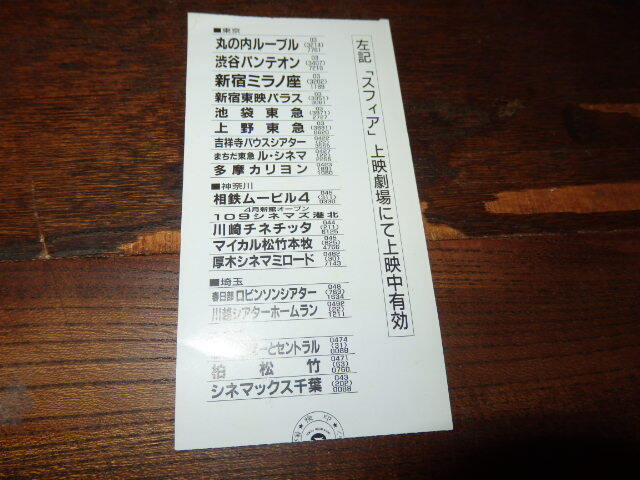 左記「スフィア」上映劇場にて上映中有効
■東京
丸の内ルーブル 03 (3214) 7761
渋谷パンテオン 03 (3407) 7219
新宿ミラノ座 03 (3202) 1189
新宿東映パラス 03 (3351)
池袋東急 03 (3971) 2727
上野東急 03 (3831)
吉祥寺バウスシアター 0422
まちだ東急ル・シネマ 0427
多摩カリヨン 0423
■神奈川
相鉄ムービル4 045 (311)
4月新館オープン
109シネマズ港北
川崎チネチッタ 044 (211) 6125
マイカル松竹本牧 045 (625) 4706
厚木シネマミロード 0462 (30) 7143
■埼玉
春日部ロビンソンシアター 048 (763) 1534
川越シアターホームラン 0492 (22) 1211
とセントラル 0474 (31) 0088
柏松竹 0471 (63) 0750
シネマックス千葉 043 (202) 0088
検印